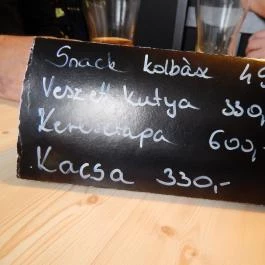 Snack kolbàsz 49
Veszett kutya 330,
Keresztapa 600,-
Kacsa 330,-